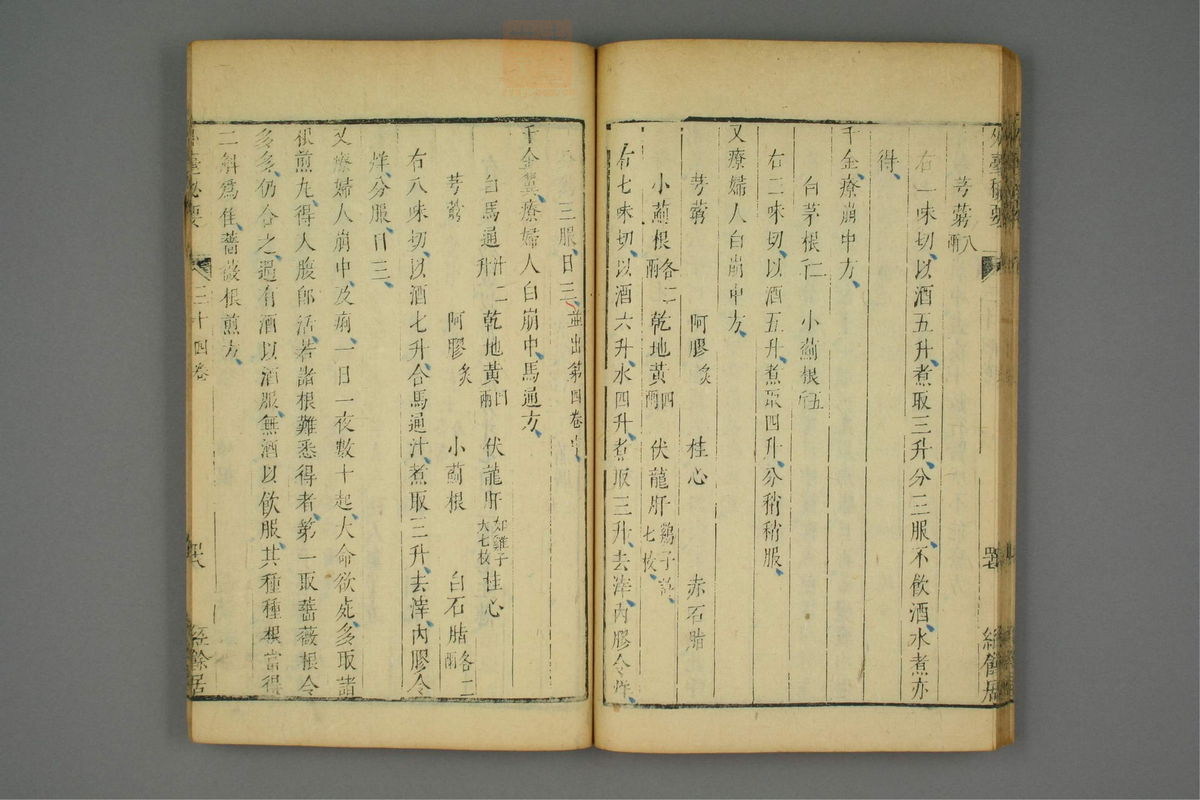 外臺秘要
芎藭八兩
右一味切以酒五升煮取三升分三服不飲酒水煮亦
得
千金療崩中方
白茅根 小薊根
右二味切以酒五升煮取四升分稍稍服
又療婦人白崩中方
芎藭 阿膠炙 桂心 赤石脂
小薊根各二兩 乾地黃四兩 伏龍肝雞子 七枚
右七味切以酒六升水四升煮取三升去滓內膠令烊
三服日三並出第四卷中
千金翼療婦人白崩中馬通方
白馬通汁二升 乾地黃四兩 伏龍肝如雞子大七枚 桂心
芎藭 阿膠炙 小薊根 白石脂各二兩
右八味切以酒七升合馬通汁煮取三升去滓內膠令
烊分服日三
又療婦人崩中及痢一日一夜數十起大命欲死多取諸
根煎丸得入腹即活若諸根難悉得者第一取薔薇根令
多多仍合之遇有酒以酒服無酒以飲服其種種根當得
二斛為佳薔薇根煎方
外臺秘要 三十四卷 經餘居